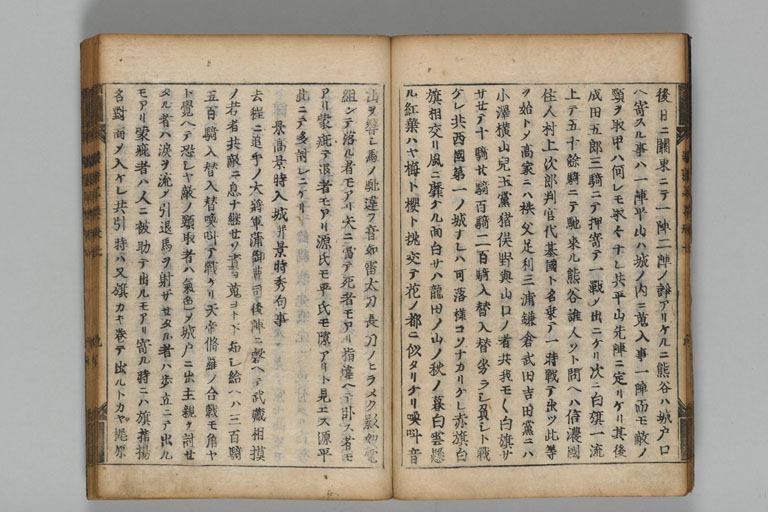 後日ニ關東ニテ一陣二陣ノ諍アリケルニ熊谷ハ城戸口
ヘ寄スル事ハ一陣平山ハ城ノ内ニ蒐入事一陣而モ敵ノ
頸ヲ取甲ハ何レモ取ケナレ共平山先陣ニ定リケリ其後
成田五郎三騎ニテ押寄テ一戰シ出ニケリ次ニ白旗一流
上テ五十餘騎ニテ馳來ル熊谷誰人ソト問ヘハ信濃國
住人村上次郎判官代基國ト名乗テ一時戰テ出ツ此等
ヲ始トシ高家ニハ秩父足利三浦鎌倉武田吉田黨ニハ
小澤横山兒玉黨猪俣野與山口ノ者共我モ〱白旗サ
サセテ十騎廿騎百騎二百騎入替入替劣ラシ負シト戰
ケレ共西國第一ノ城ナレハ可落様コソナカリケレ赤旗白
旗相交リ風ニ靡ケル面白サハ龍田ノ山ノ秋ノ暮白雲懸
ル紅葉ハヤ梅ト櫻ト挑交テ花ノ都ニ似タリケリ喚叫音
山ヲ響シ馬ノ馳違フ音如雷太刀長刀ノヒラメク影如電
組ンテ落ル者モアリ矢ニ當テ死者モアリ指違ヘテ卧ス者モ
アリ蒙疵テ退者モアリ源氏モ平氏モ隙アリト見エス源平
此ニテ多討レニケリ
景高景時入城并景時秀句事
去程ニ追手ノ大將軍蒲御曹司後陣ニ磬ヘテ武藏相摸
ノ若者共敵ニ息ナ継セソ責ヨ蒐ヨト下知シ給ヘハ三百騎
五百騎入替入替喚叫テ戰ケリ天帝脩羅ノ合戰モ角ヤ
ト覺ヘテ恐シヤ敵ノ頸取者ハ氣色シ城戸ニ出主親ヲ討セ
タル者ハ涙ヲ流シ引退馬ヲ射サセタル者ハ歩立ニテ出ル
モアリ蒙疵者ハ人ニ被助テ出ルモアリ寄ル時ニハ旗指揚
名對面シ入ケレ共引時ハ又旗カキ巻テ出ルトカヤ梶原